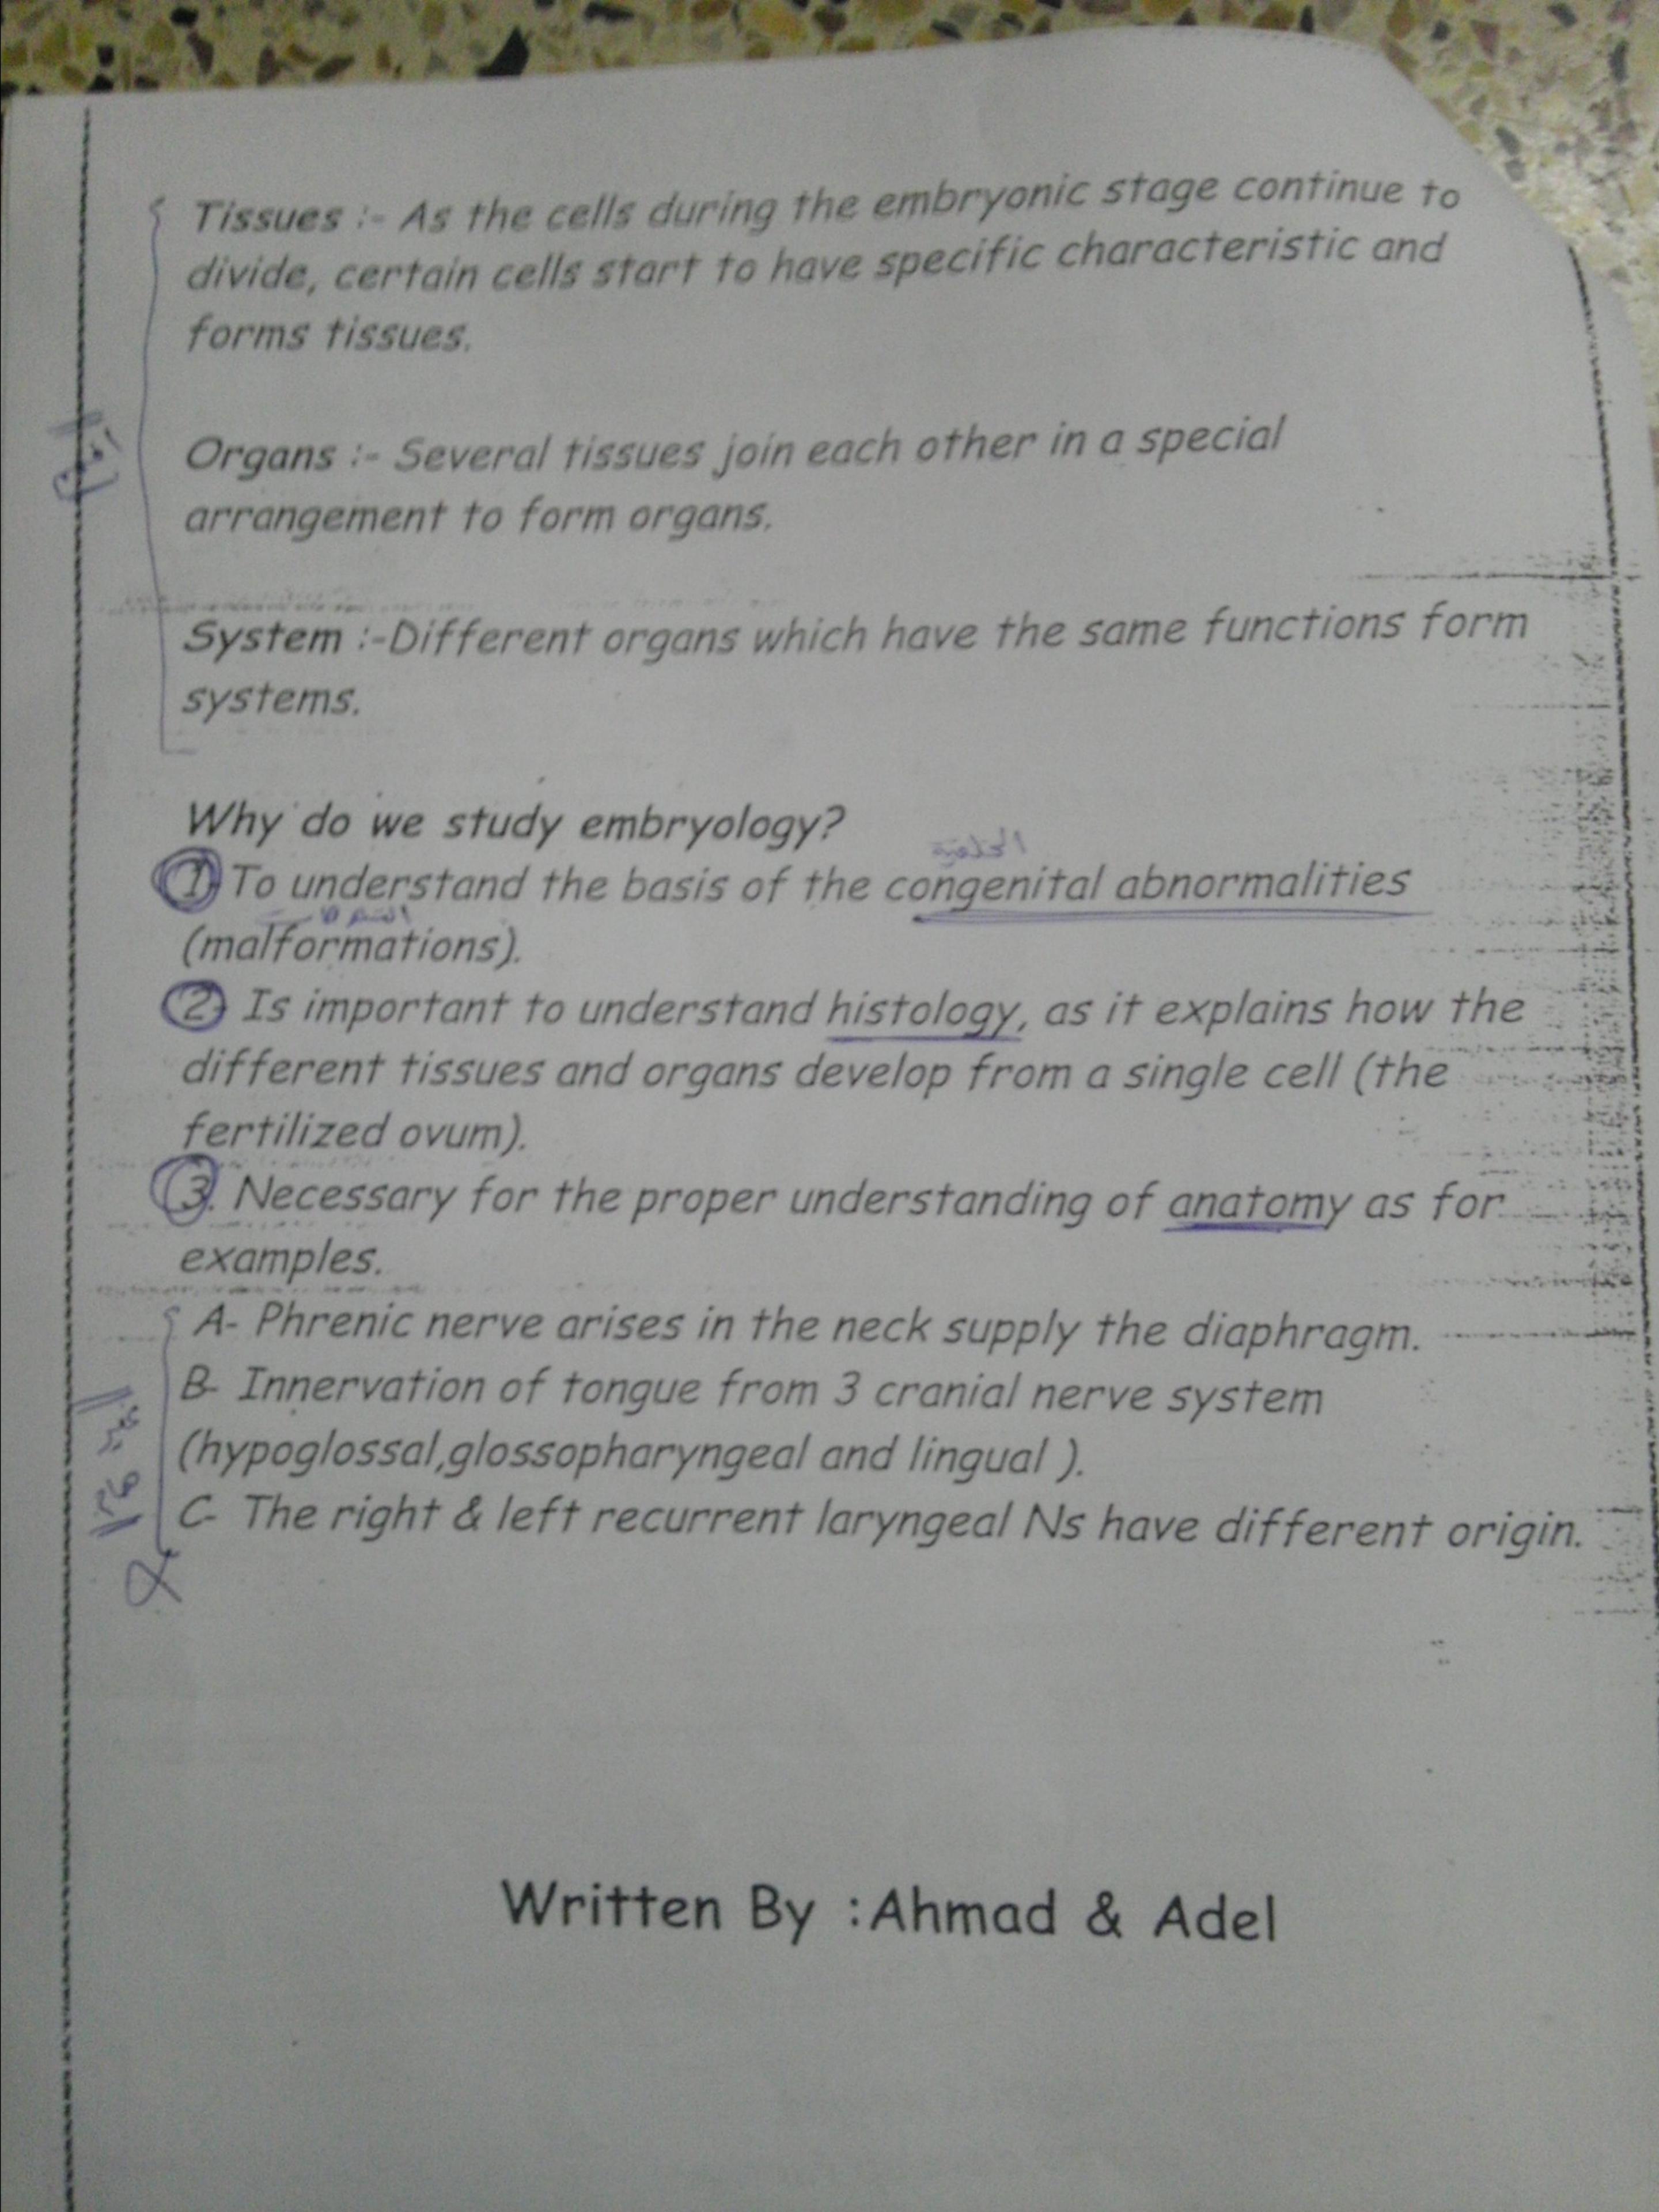 Tissues :- As the cells during the embryonic stage continue to
divide, certain cells start to have specific characteristic and
forms tissues.
Organs :- Several tissues join each other in a special
arrangement to form organs.
System :-Different organs which have the same functions form
systems.
Why do we study embryology?
1. To understand the basis of the congenital abnormalities
(malformations).
2. Is important to understand histology, as it explains how the
different tissues and organs develop from a single cell (the
fertilized ovum).
3. Necessary for the proper understanding of anatomy as for
examples.
A- Phrenic nerve arises in the neck supply the diaphragm.
B- Innervation of tongue from 3 cranial nerve system
(hypoglossal,glossopharyngeal and lingual ).
C- The right & left recurrent laryngeal Ns have different origin.
Written By :Ahmad & Adel